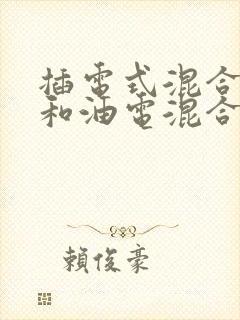 插電式混合
和油電混合
賴俊豪